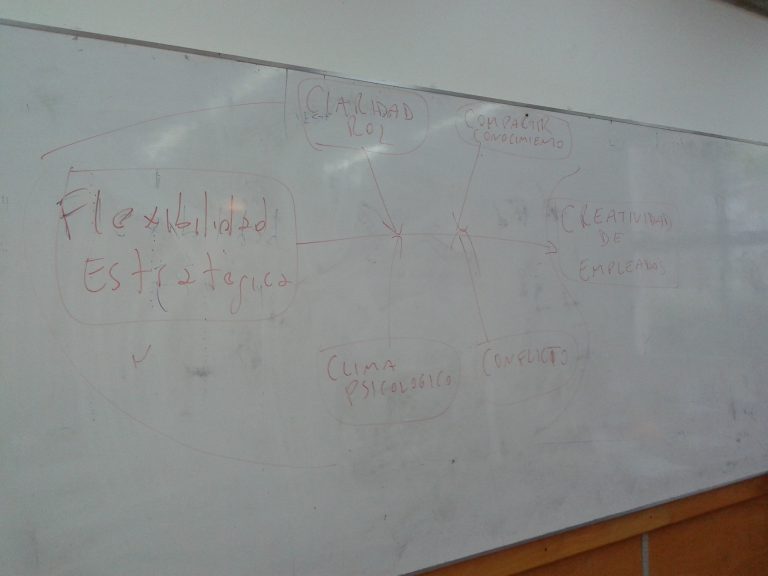 CLARIDAD
ROL
COMPARTIR
CONOCIMIENTO
Flexibilidad
Estratégica
CREATIVIDAD
DE
EMPLEADOS
CLIMA
PSICOLOGICO
CONFLICTO